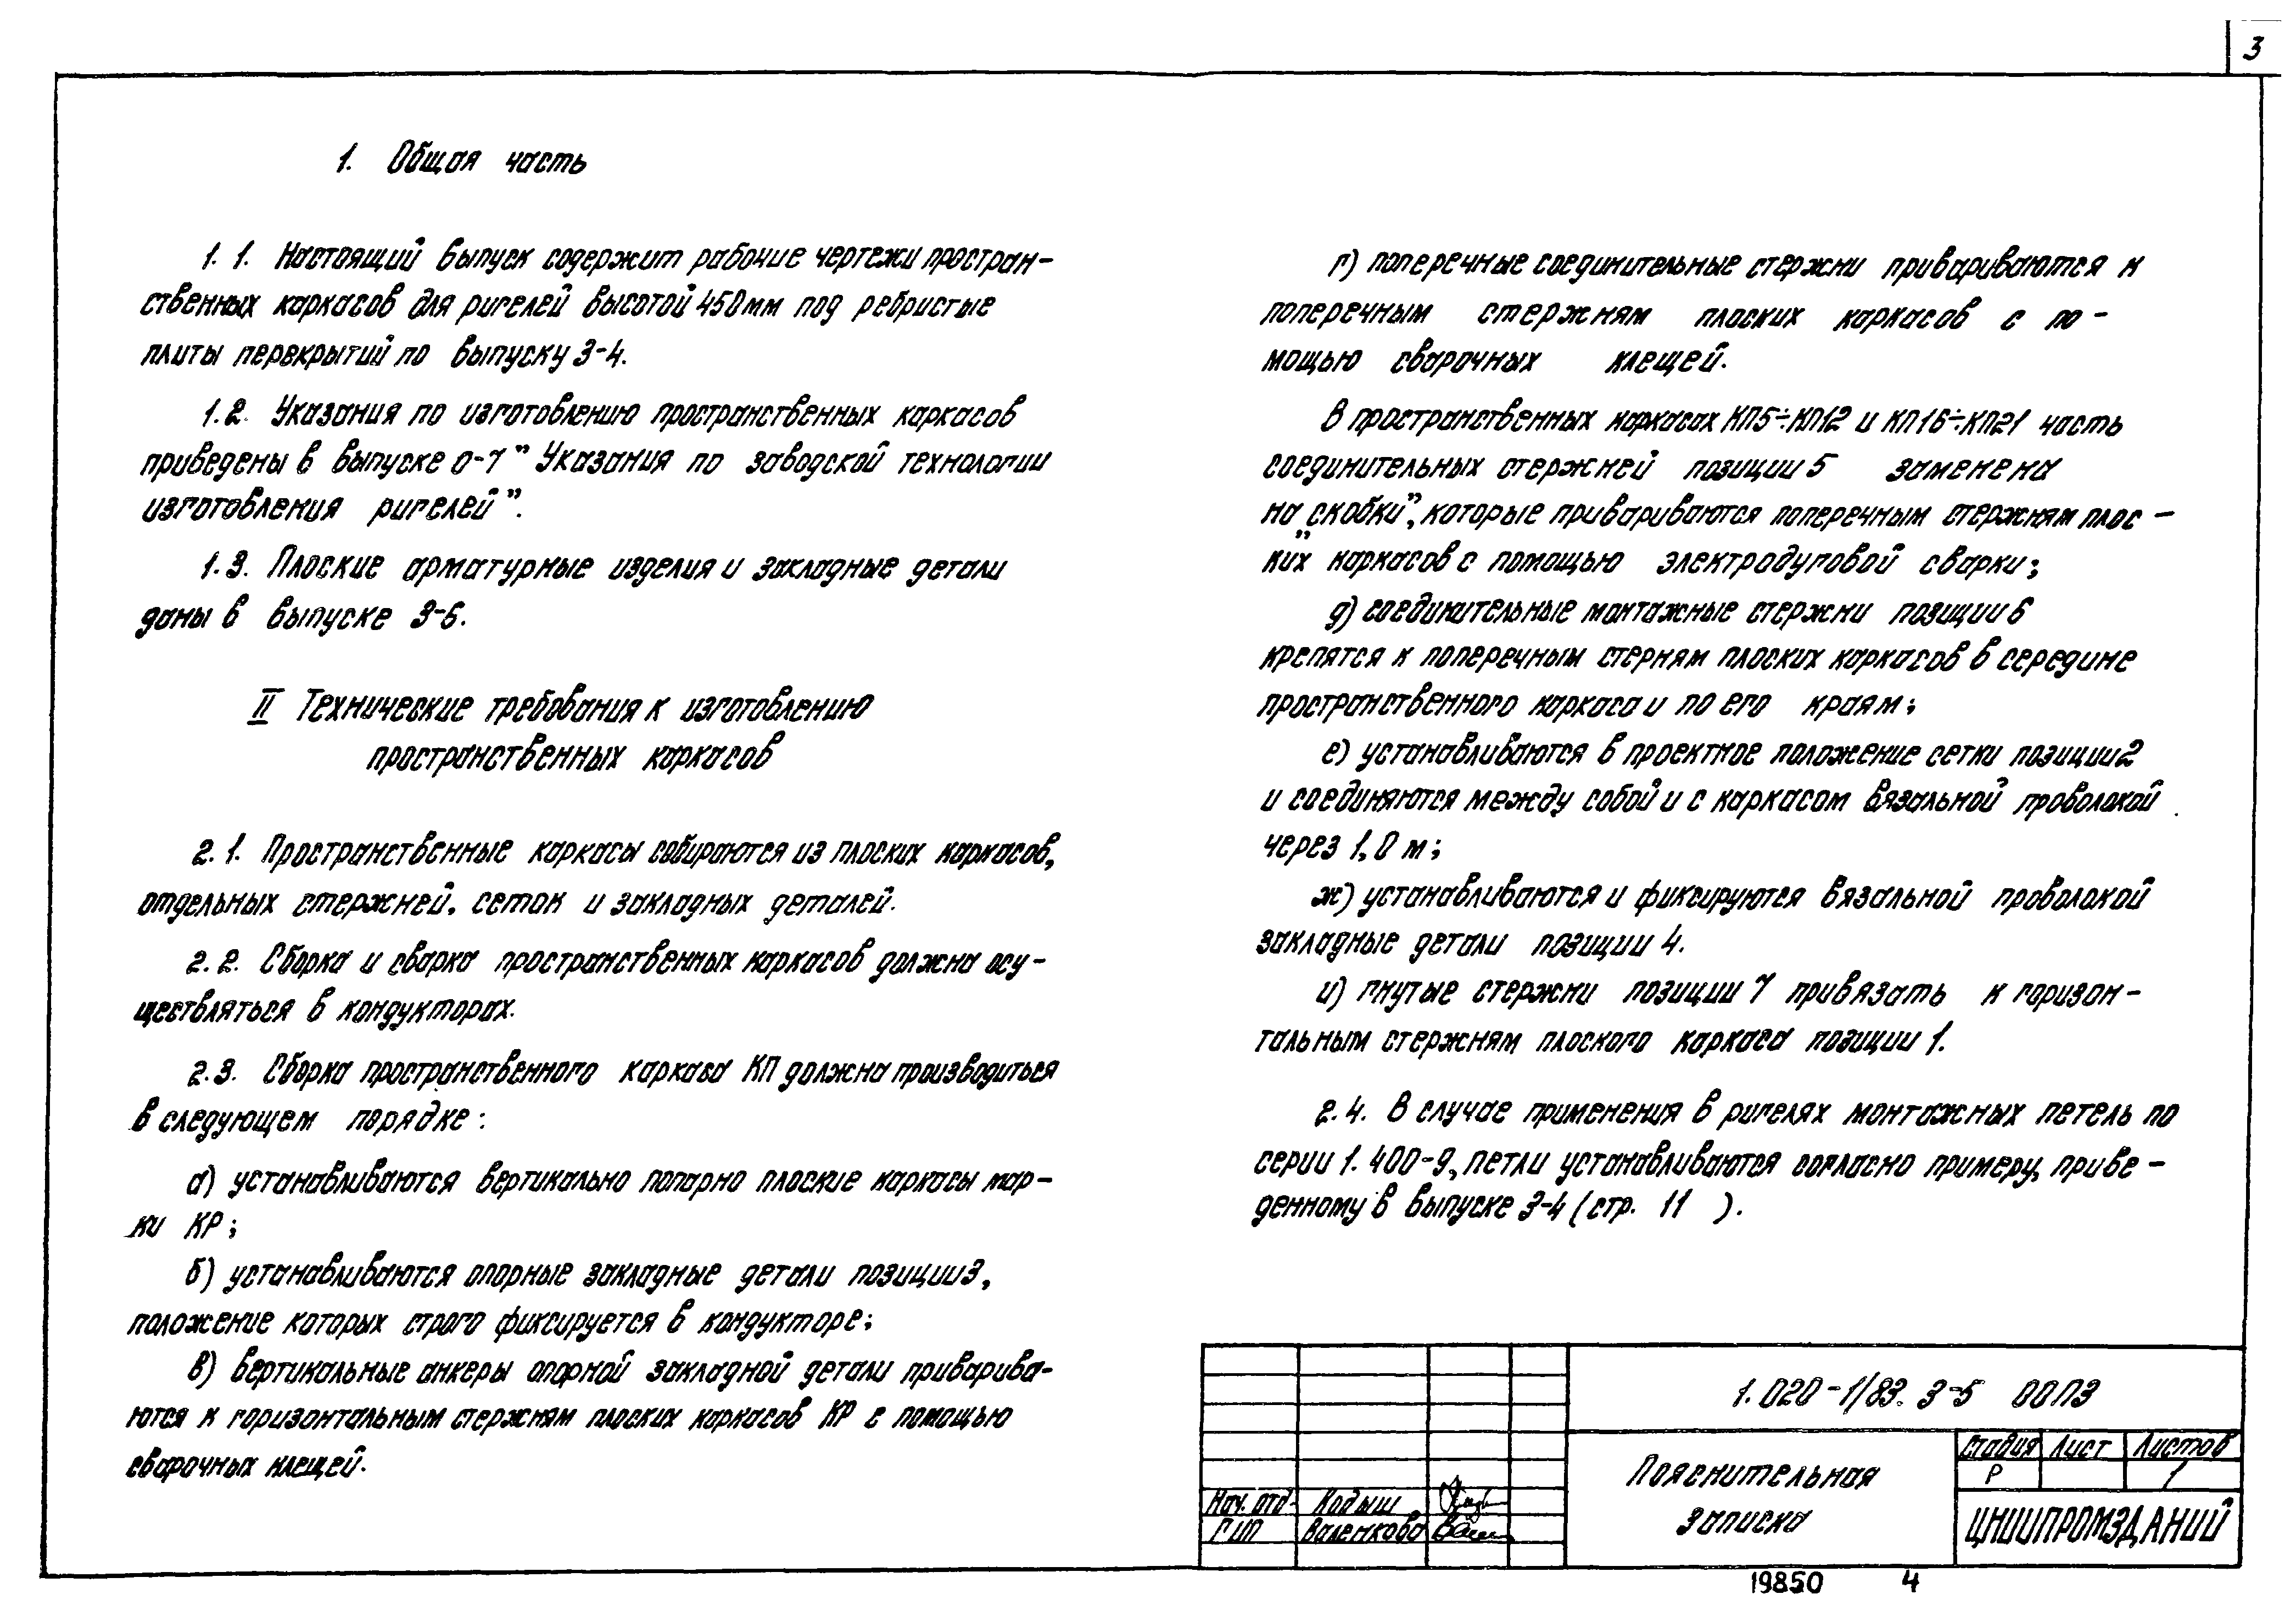 3
1. Общая часть
1.1. Настоящий выпуск содержит рабочие чертежи простран-
ственных каркасов для ригелей высотой 450мм под ребристые
плиты перекрытий по выпуску 3-4.
1.2. Указания по изготовлению пространственных каркасов
приведены в выпуске 0-7 " Указания по заводской технологии
изготовления ригелей".
1.3. Плоские арматурные изделия и закладные детали
даны в выпуске 3-6.
II Технические требования к изготовлению
пространственных каркасов
2.1. Пространственные каркасы собираются из плоских каркасов,
отдельных стержней, сеток и закладных деталей.
2.2. Сборка и сварка пространственных каркасов должна осу-
ществляться в кондукторах.
2.3. Сборка пространственного каркаса КП должна производиться
в следующем порядке:
а) устанавливаются вертикально попарно плоские каркасы мар-
ки КР;
б) устанавливаются опорные закладные детали позиции 3,
положение которых строго фиксируется в кондукторе;
в) вертикальные анкеры опорной закладной детали приварива-
ются к горизонтальным стержням плоских каркасов КР с помощью
сварочных клещей.
г) поперечные соединительные стержни привариваются к
поперечным стержням плоских каркасов с по-
мощью сварочных клещей.
В пространственных каркасах КП5÷КП12 и КП16÷КП21 часть
соединительных стержней позиции 5 заменена
на „скобки", которые привариваются поперечным стержням плос-
ких каркасов с помощью электродуговой сварки;
д) соединительные монтажные стержни позиции 6
крепятся к поперечным стерням плоских каркасов в середине
пространственного каркаса и по его краям;
е) устанавливаются в проектное положение сетки позиции 2
и соединяются между собой и с каркасом вязальной проволокой
через 1,0 м;
ж) устанавливаются и фиксируются вязальной проволокой
закладные детали позиции 4.
и) гнутые стержни позиции 7 привязать к горизон-
тальным стержням плоского каркаса позиции 1.
2.4. В случае применения в ригелях монтажных петель по
серии 1.400-9, петли устанавливаются согласно примеру, приве-
денному в выпуске 3-4 (стр. 11 ).
1.020-1/83. 3-5 00ПЗ
Пояснительная
записка
Стадия Лист Листов
Р 1
ЦНИИПРОМЗДАНИЙ
Нач. отд. Кодыш
ГИП Валенкова
19850 4